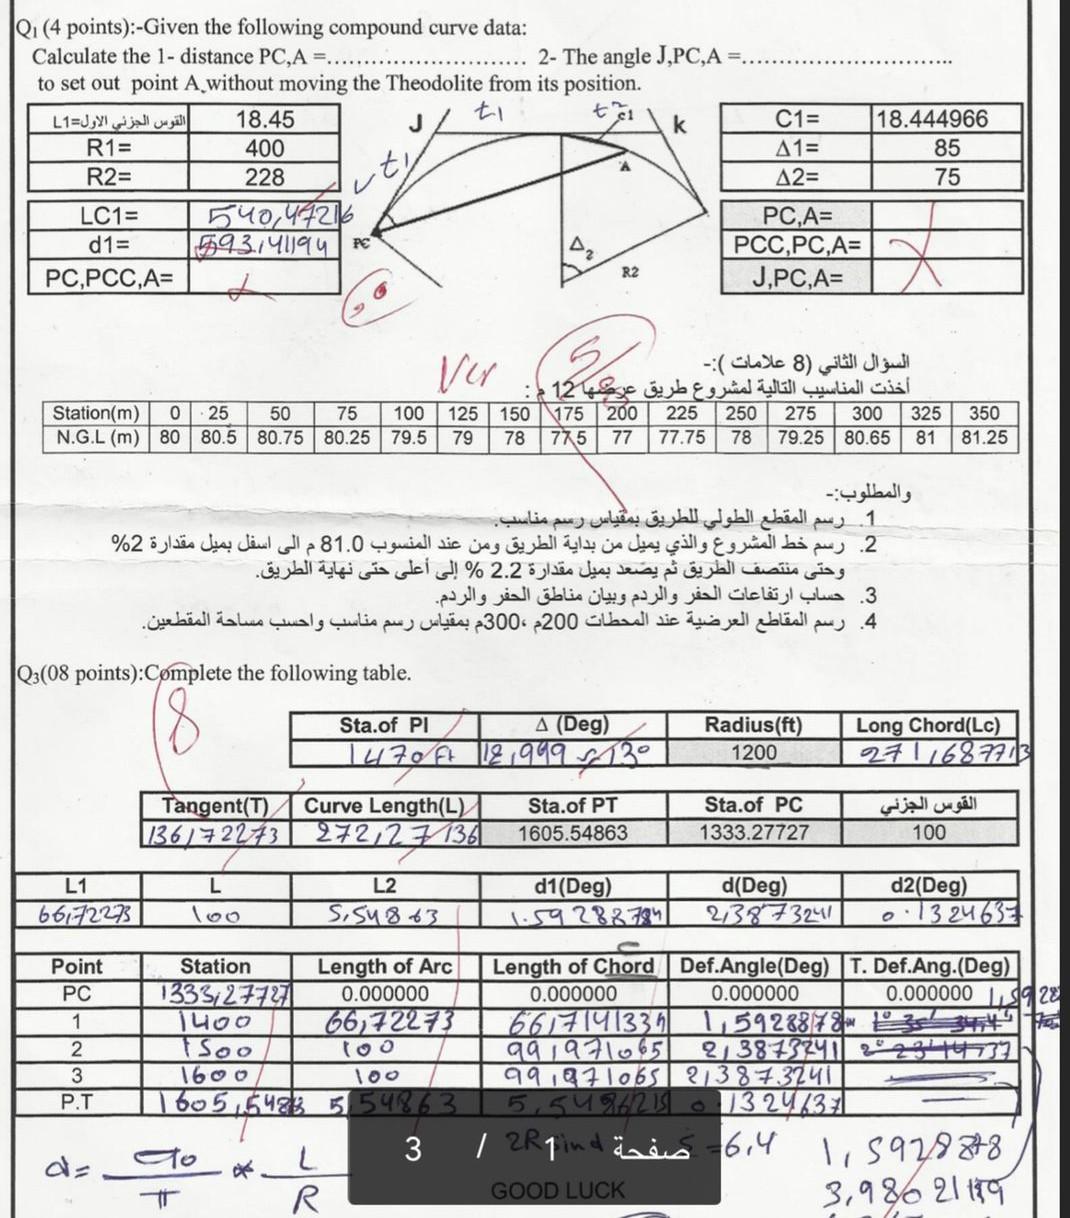 Q1 (4 points):-Given the following compound curve data:
Calculate the 1- distance PC,A =............................ 2- The angle J,PC,A =..............................
to set out point A,without moving the Theodolite from its position.
L1=القوس الجزئي الاول 18.45
R1= 400
R2= 228
LC1= 540,47216
d1= 593,41194
PC,PCC,A=
J t1 t2 c1 k
t1
A
PC
Δ2
R2
C1= 18.444966
Δ1= 85
Δ2= 75
PC,A=
PCC,PC,A=
J,PC,A=
5/8
السؤال الثاني (8 علامات ):-
أخذت المناسيب التالية لمشروع طريق عرضها 12 م :
Station(m) 0 25 50 75 100 125 150 175 200 225 250 275 300 325 350
N.G.L (m) 80 80.5 80.75 80.25 79.5 79 78 77.5 77 77.75 78 79.25 80.65 81 81.25
والمطلوب:-
1. رسم المقطع الطولي للطريق بمقياس رسم مناسب.
2. رسم خط المشروع والذي يميل من بداية الطريق ومن عند المنسوب 81.0 م الى اسفل بميل مقدارة 2%
وحتى منتصف الطريق ثم يصعد بميل مقدارة 2.2 % إلى أعلى حتى نهاية الطريق.
3. حساب ارتفاعات الحفر والردم وبيان مناطق الحفر والردم.
4. رسم المقاطع العرضية عند المحطات 200م ،300م بمقياس رسم مناسب واحسب مساحة المقطعين.
Q3(08 points):Complete the following table.
8
Sta.of PI Δ (Deg) Radius(ft) Long Chord(Lc)
1470 ft 12,999 ≈ 13° 1200 271,687713
Tangent(T) Curve Length(L) Sta.of PT Sta.of PC القوس الجزئي
136,72273 272,27136 1605.54863 1333.27727 100
L1 L L2 d1(Deg) d(Deg) d2(Deg)
66,72273 100 5,54863 1.59288784 2,3873241 0.1324637
Point Station Length of Arc Length of Chord Def.Angle(Deg) T. Def.Ang.(Deg)
PC 1333,27727 0.000000 0.000000 0.000000 0.000000
1 1400 66,72273 66,7141334 1,5928878
2 1500 100 99,971065 2,3873241
3 1600 100 99,971065 2,3873241
P.T 1605,5486 5,54863 5,5486215 0.1324637
d= 90/π * L/R
2R sin d
=6,4
1,5928878
3,9802119
3 / 1 صفحة
GOOD LUCK